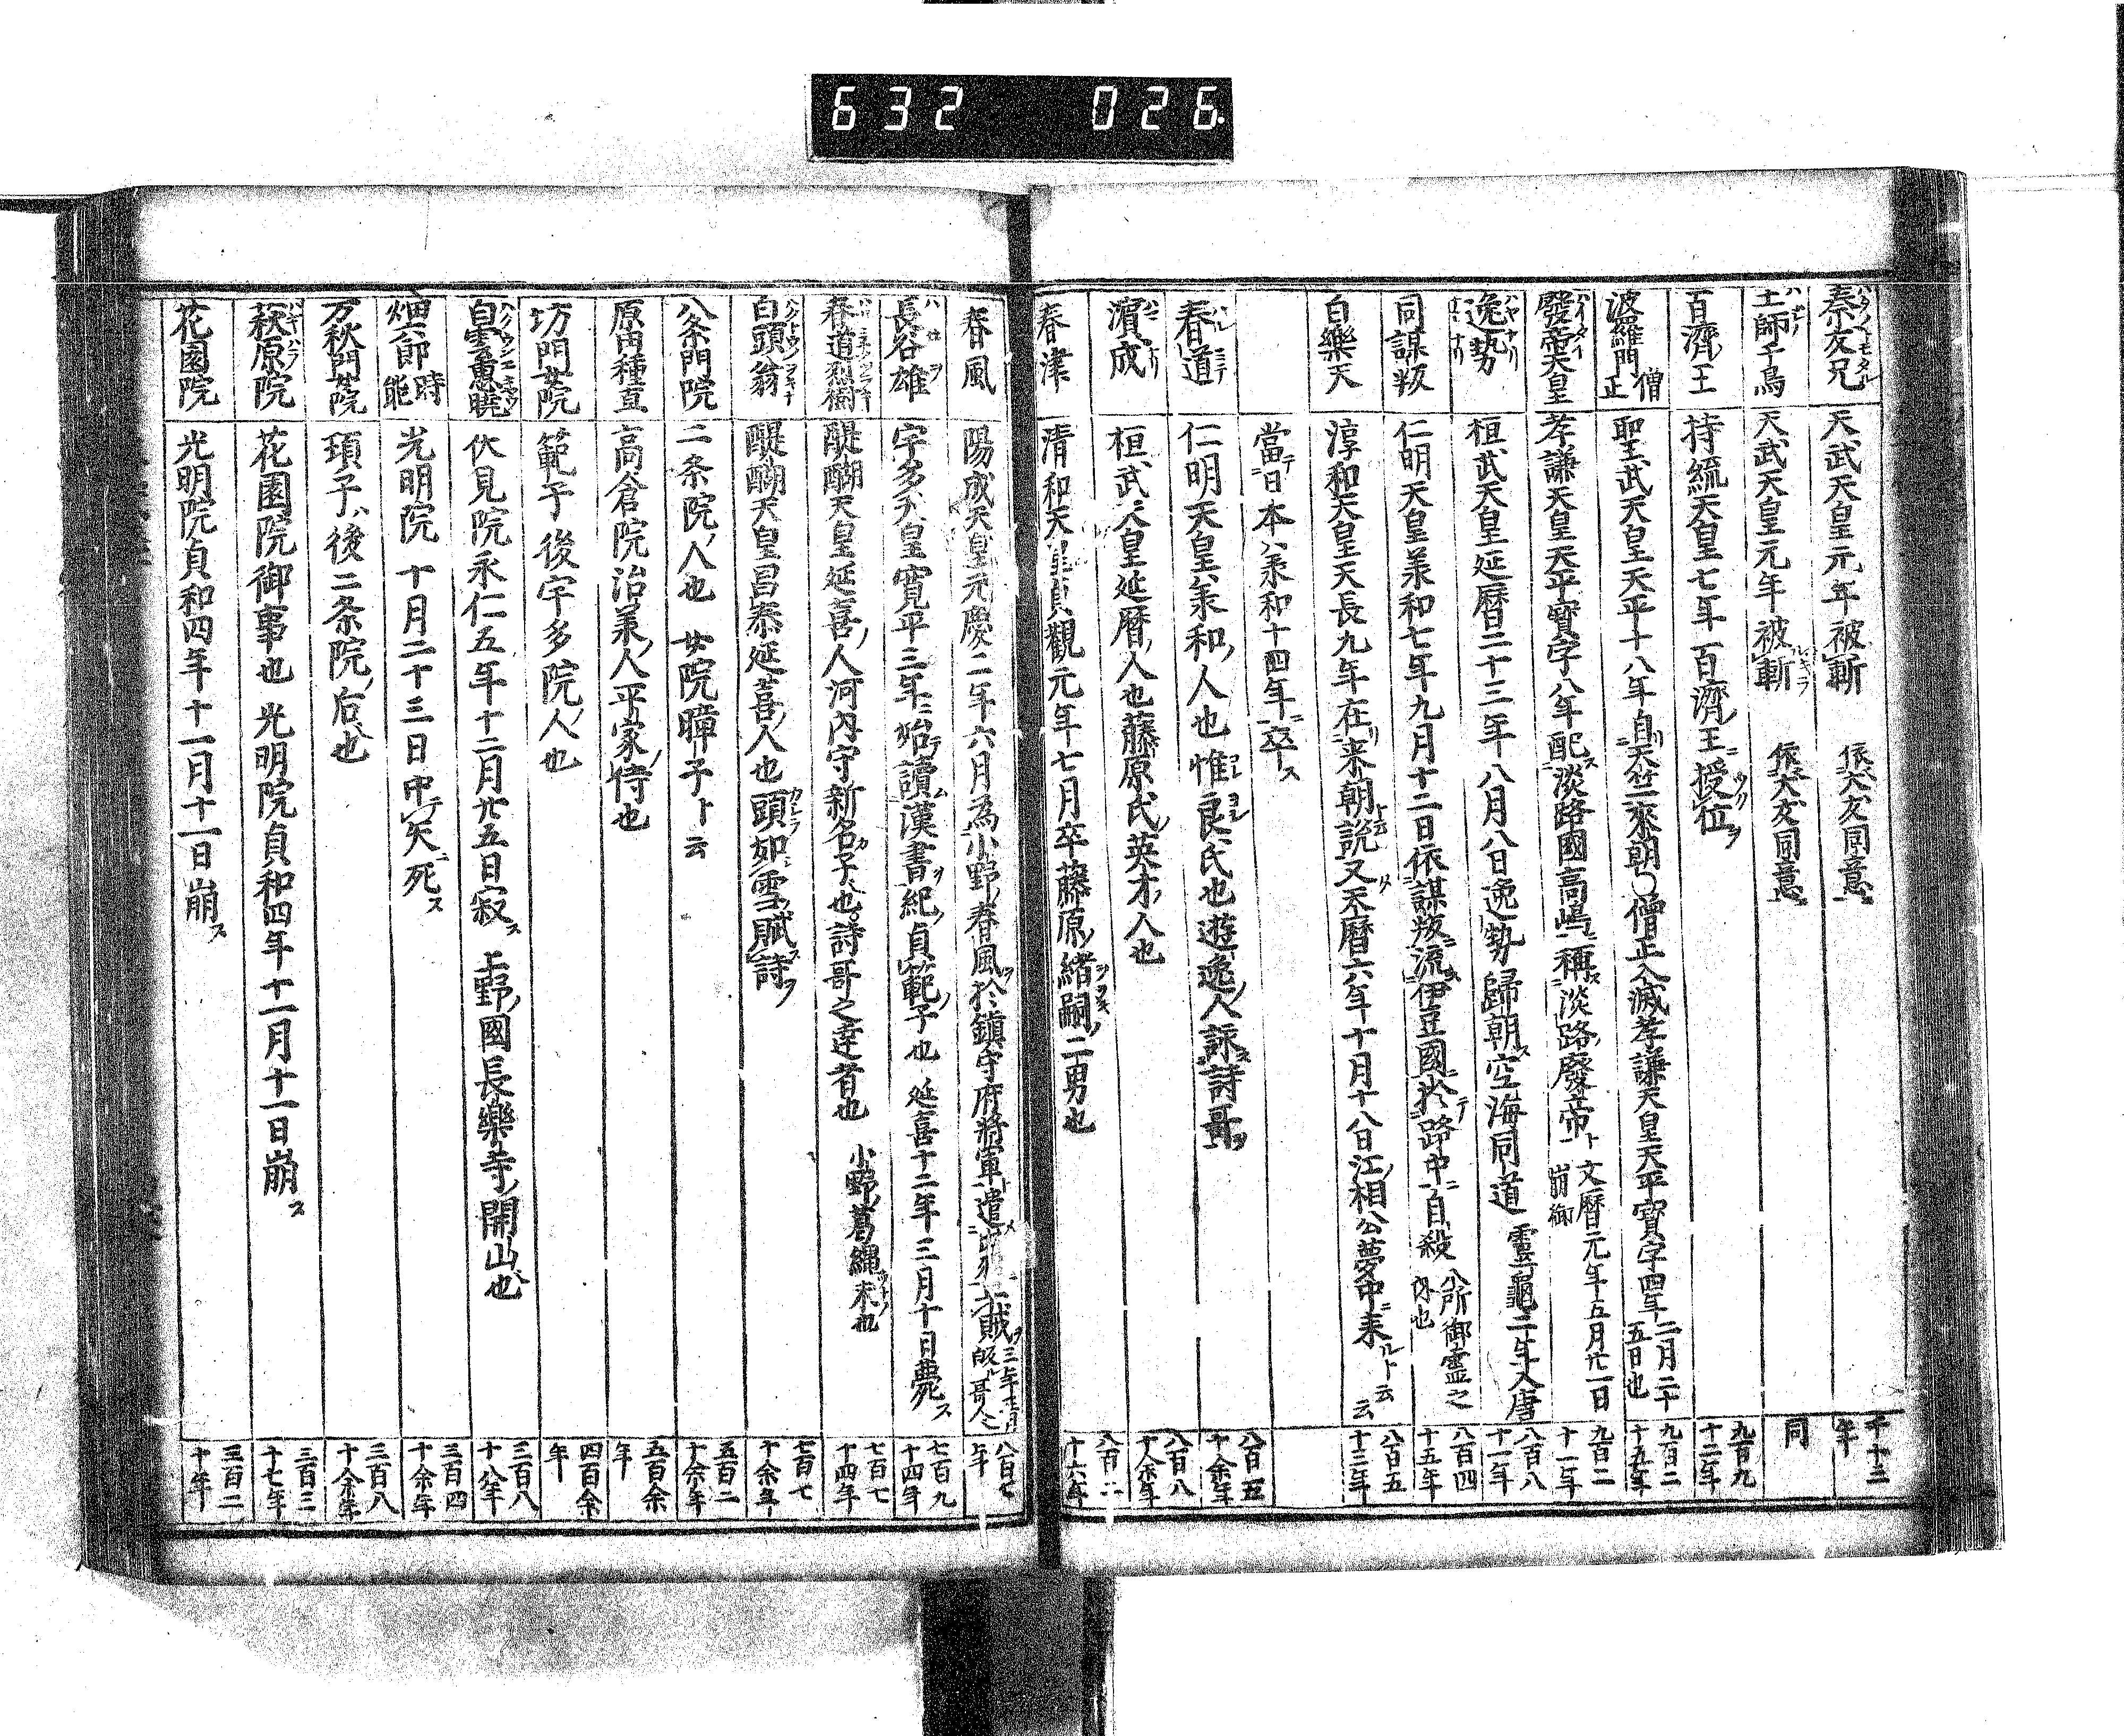 632 026
秦友兄 天武天皇元年被斬 依大友同意 千十三年
土師千鳥 天武天皇元年被斬 依大友同意 同
百濟王 持統天皇七年百濟王授位 九百九十二年
波羅門僧正 聖武天皇天平十八年自天竺來朝 僧正入滅孝謙天皇天平寶字四年二月二十五日也 九百二十五年
發帝天皇 孝謙天皇天平寶字八年配淡路國高嶋稱淡路廢帝ト 文曆元年五月廿一日崩御 九百二十一年
逸勢 桓武天皇延曆二十三年八月八日逸勢歸朝ス空海同道 靈龜二年大唐 八百八十一年
同謀叛 仁明天皇承和七年九月十二日依謀叛流伊豆國於路中自殺 八所御靈之 也 八百四十五年
白樂天 淳和天皇天長九年在来朝說又天曆六年十月十八日江相公夢中来ルト云云 八百五十三年
當日本承和十四年卒ス
春道 仁明天皇承和人也 惟良氏也遊逸人詠詩哥 八百五十余年
濵成 桓武天皇延曆人也藤原氏英才人也 八百八十余年
春津 清和天皇貞觀元年七月卒藤原緒嗣二男也 十六年
春風 陽成天皇元慶二年六月為小野春風於鎮守府將軍遣 賊 三年 哥人 八百七年
長谷雄 宇多天皇寛平三年始讀漢書紀貞範子也 延喜十二年三月十日薨ス 七百九十四年
春道烈樹 醍醐天皇延喜人河内守新名子也詩哥之達者也 小野葛縄末也 七百七十四年
白頭翁 醍醐天皇昌泰延喜人也頭如雪賦詩 七百七十余年
八条門院 二条院人也 女院暲子ト云 五百二十余年
原田種直 高倉院治承人平家侍也 五百余年
坊門女院 範子後宇多院人也 四百余年
白雲惠曉 伏見院永仁五年十二月廿五日寂ス 上野國長樂寺開山也 三百八十八年
畑六郎時能 光明院 十月二十三日中矢死ス 三百四十余年
万秋門女院 頊子後二条院后也 三百八十余年
萩原院 花園院御事也 光明院貞和四年十一月十一日崩ス 三百三十七年
花園院 光明院貞和四年十一月十一日崩ス 三百二十年